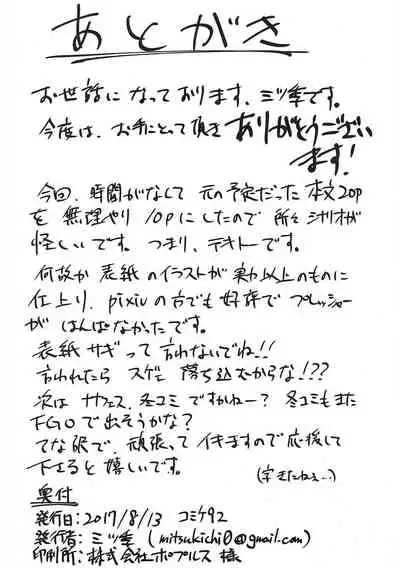 あとがき
お世話になっております、ミツ季です。
今度は、お手にとって頂き ありがとうござい
ます!
今回、時間がなくて 元の予定だった 本文20p
を 無理やり 10pにしたので 所々 シナリオが
怪しいです。 つまり、テキトーです。
何故か 表紙のイラストが 実力以上のものに
仕上り、pixivの方でも 好評で プレッシャー
が はんぱなかったです。
表紙サギって 言わないでね!!
言われたら スゲェ 落ち込むからな!??
次は サンフェス、冬コミ ですかねー? 冬コミもまた
FGOで出そうかな?
てな訳で、頑張って イキますので応援して
下さると 嬉しいです。
(字きたねぇ…)
奥付
発行日:2017/8/13 コミケ92
発行者:ミツ季 (mitsukichi0@gmail.com)
印刷所:株式会社ポプルス 様